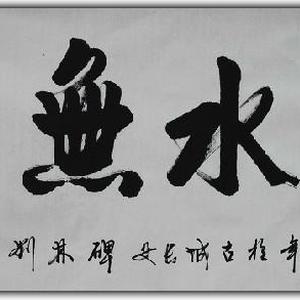 水無
年於古城长安碑林